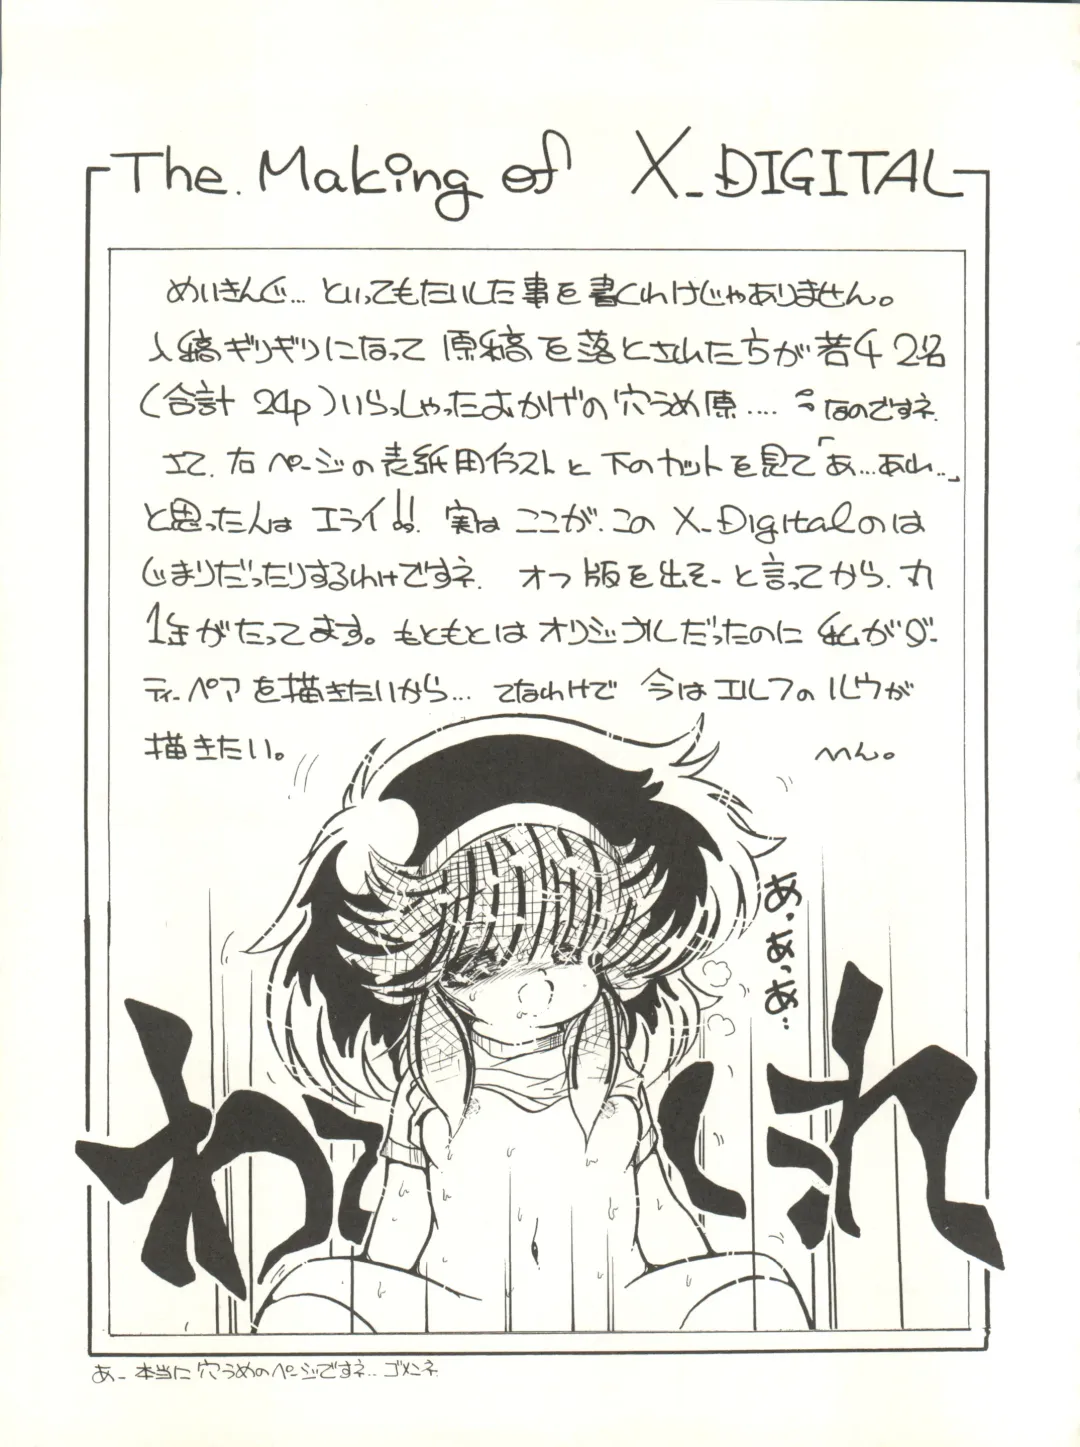 The. Making of X_DIGITAL
めいきんぐ… といってもたいした事を書くわけじゃありません。
入稿ギリギリになって 原稿を落とされたちが 若干2名
(合計 24p)いらっしゃったおかげの穴うめ原…. なのですネ.
さて. 右ページの表紙用イラストと下のカットを見て「あ…あれ…」
と思った人は エライ!! 実は ここが. この X_Digitalのは
じまりだったりするわけですネ. オフ版を出そーと言ってから. 丸
1年がたってます。もともとは オリジナルだったのに 私がダー
ティーペアを描きたいから… てなわけで 今はエルフのルウが
描きたい。 へん。
あ、あ、あ…
われ
あー 本当に穴うめのページですネ… ゴメンネ